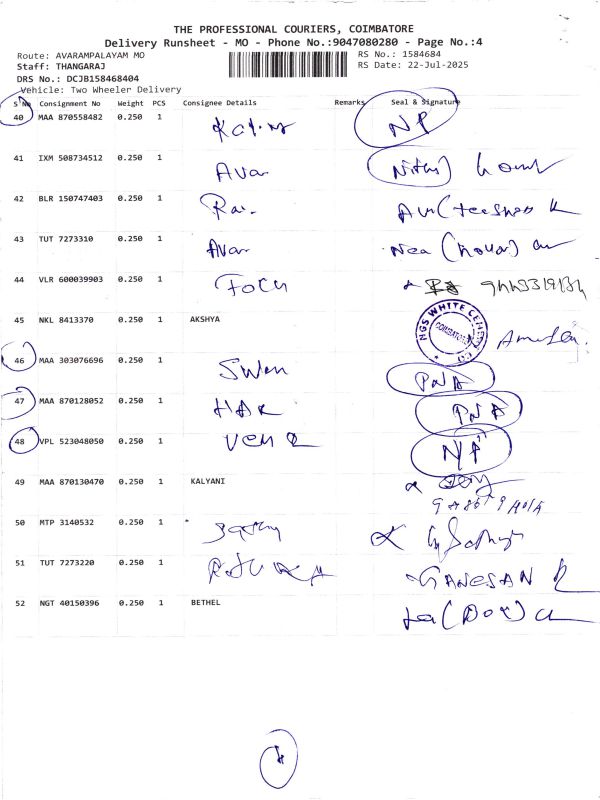 THE PROFESSIONAL COURIERS, COIMBATORE
Delivery Runsheet - MO - Phone No.:9047080280 - Page No.:4
Route: AVARAMPALAYAM MO
RS No.: 1584684
Staff: THANGARAJ
RS Date: 22-Jul-2025
DRS No.: DCJB158468404
Vehicle: Two Wheeler Delivery
S No Consignment No Weight PCS Consignee Details Remarks Seal & Signature
40 MAA 870558482 0.250 1 NP
41 IXM 508734512 0.250 1 Avar
42 BLR 150747403 0.250 1
43 TUT 7273310 0.250 1 Avar
44 VLR 600039903 0.250 1
45 NKL 8413370 0.250 1 AKSHYA NGS WHITE COIMBATORE
46 MAA 303076696 0.250 1 PNA
47 MAA 870128052 0.250 1 PNA
48 VPL 523048050 0.250 1 NP
49 MAA 870130470 0.250 1 KALYANI
50 MTP 3140532 0.250 1 *
51 TUT 7273220 0.250 1 GANESAN
52 NGT 40150396 0.250 1 BETHEL